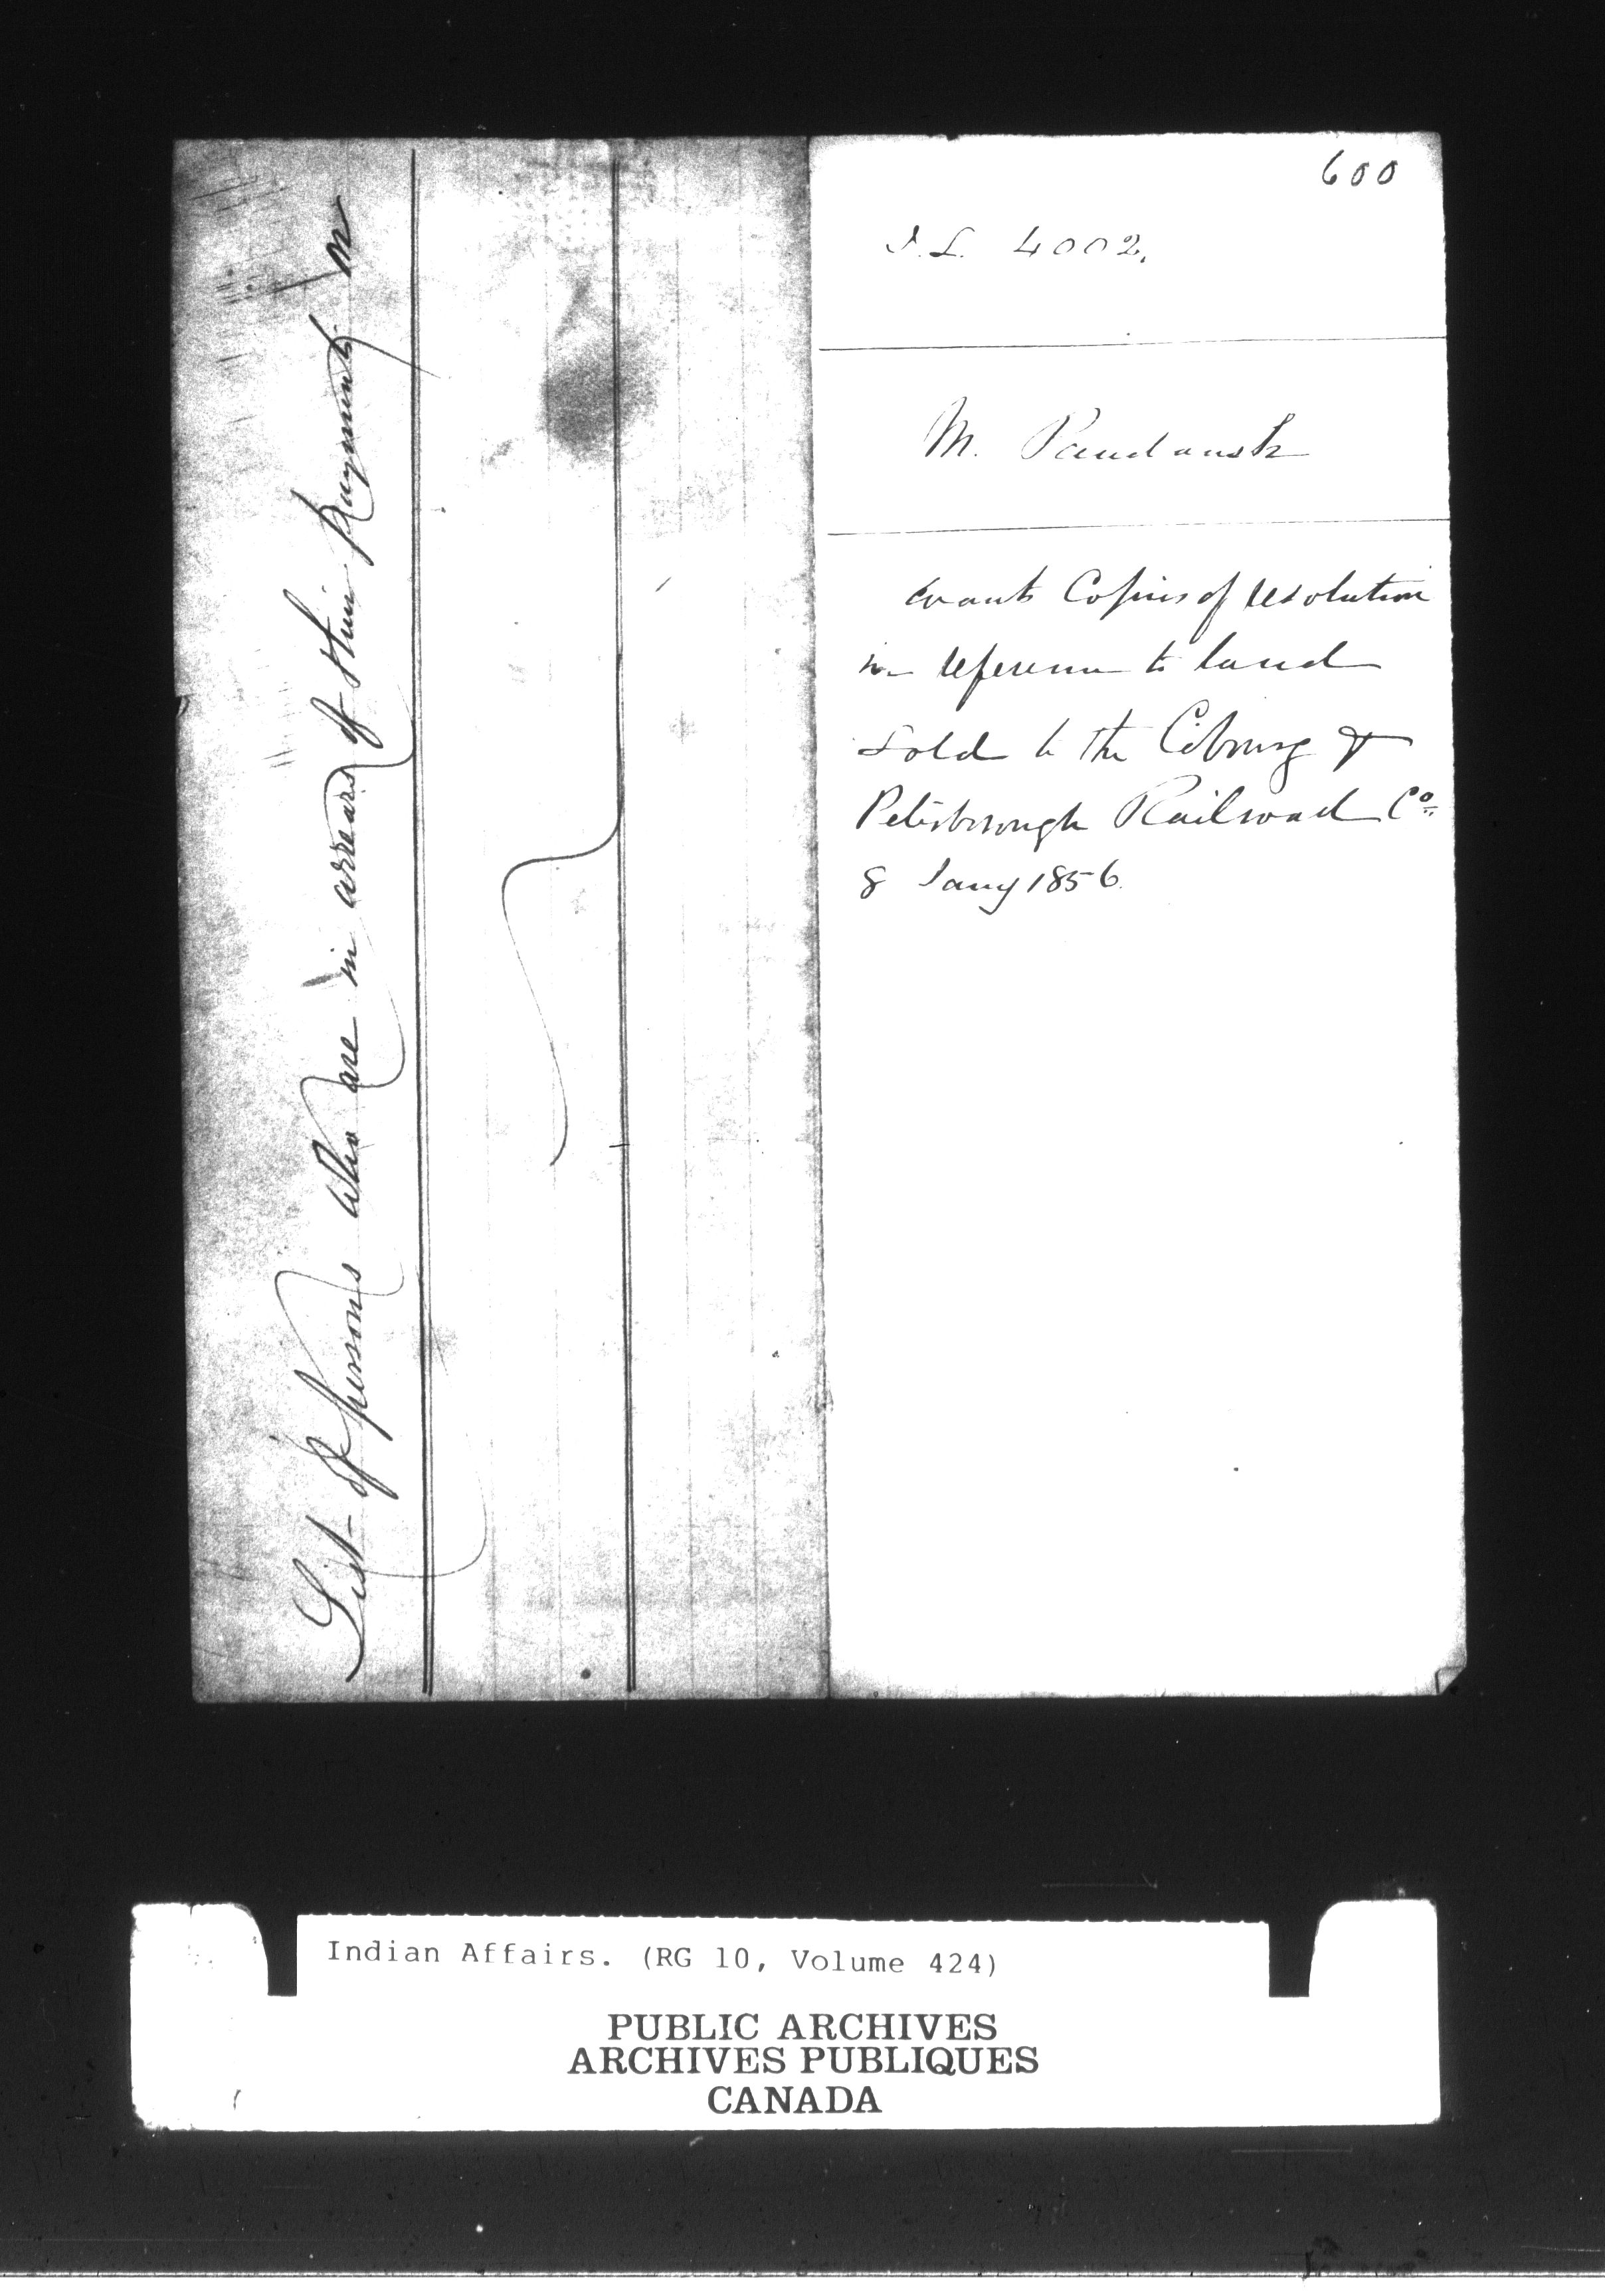 List of persons who are in arrears of their payments
600
I.L. 4002.
M. Paudaush
wants Copies of resolution
in reference to land
sold to the Cobourg &
Peterborough Railroad Co
8 Jany 1856.
Indian Affairs. (RG 10, Volume 424)
PUBLIC ARCHIVES
ARCHIVES PUBLIQUES
CANADA